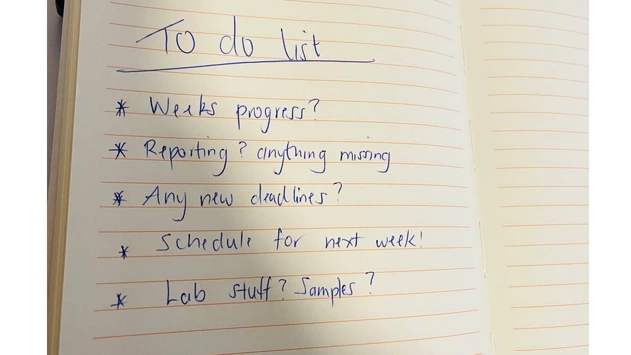 To do list
* Weeks progress?
* Reporting? anything missing
* Any new deadlines?
* Schedule for next week!
* Lab stuff? Samples?